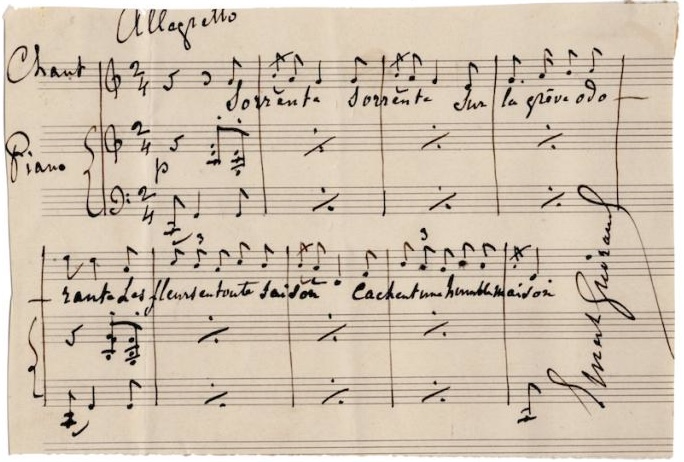 Allegretto
Chant 2 4
Sorrente Sorrente Sur la grève odo
Piano 2 4
p
2 4
3
rante Les fleurs en toute saison Cachent une humble maison
3
Ernest Guiraud